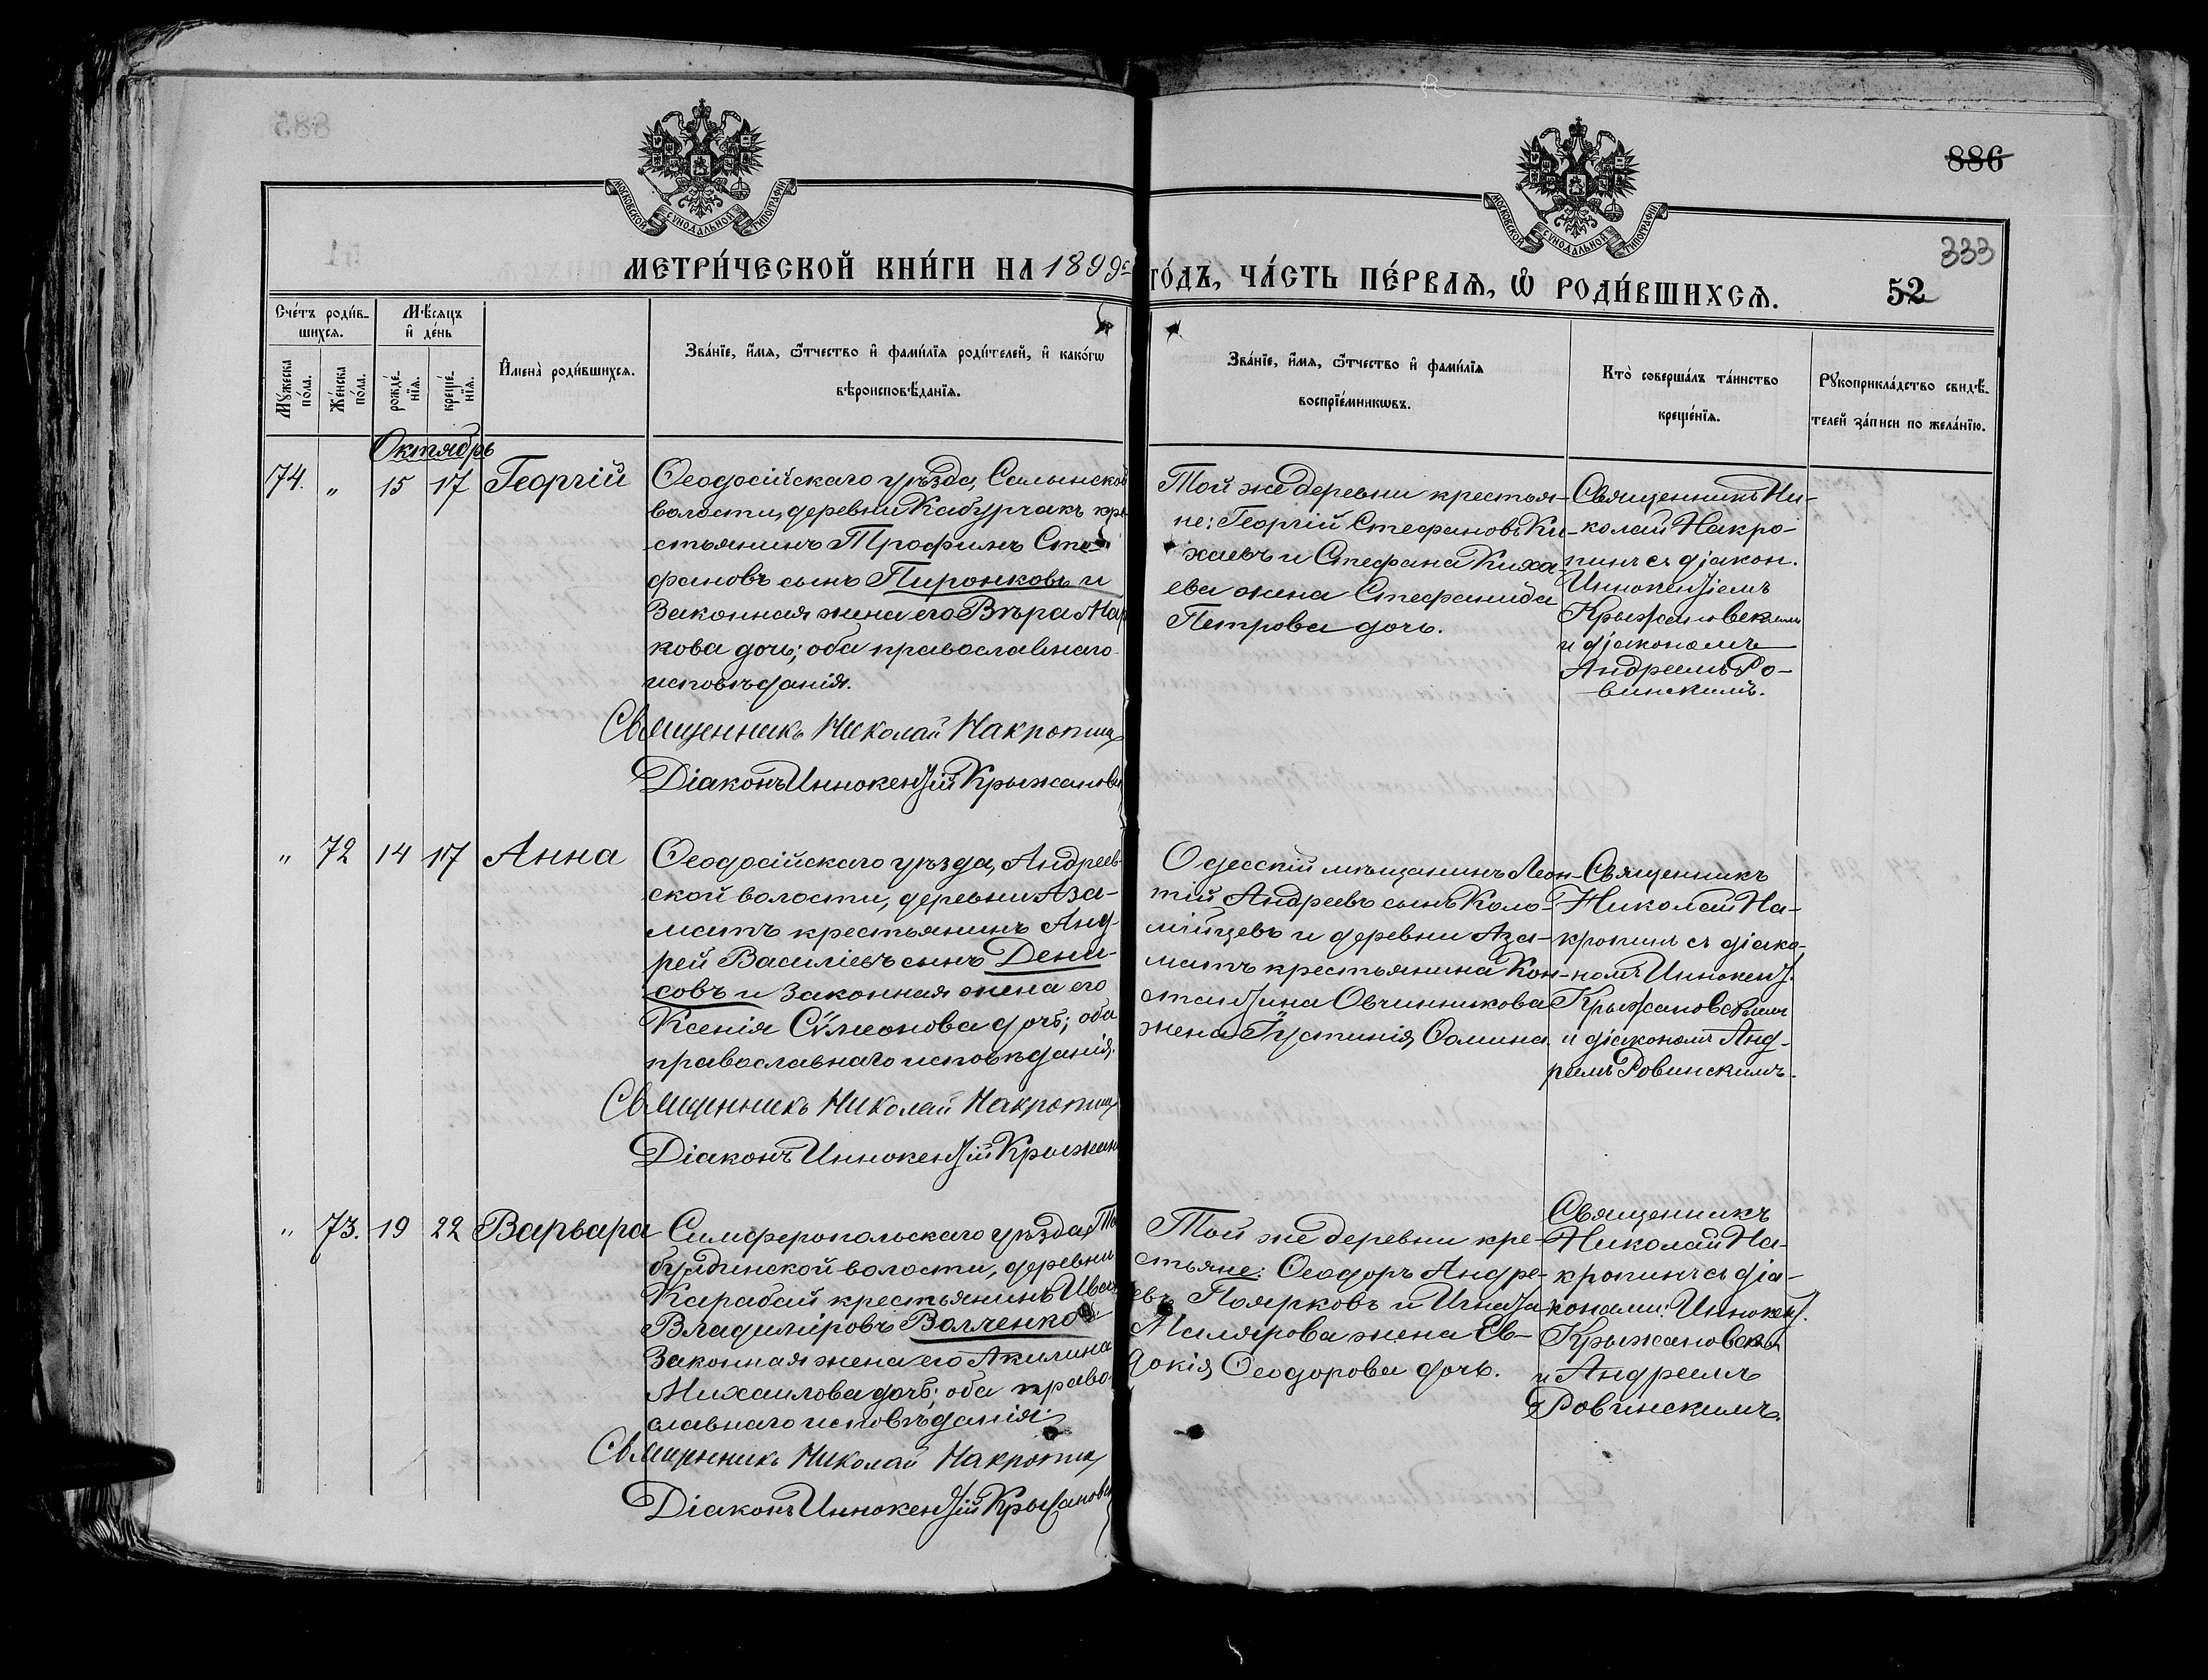 886
333
52
МОСКОВСКОЙ СѴНОДАЛЬНОЙ ТИПОГРАФІИ
МОСКОВСКОЙ СѴНОДАЛЬНОЙ ТИПОГРАФІИ
МЕТРИ́ЧЕСКОЙ КНИ́ГИ НА 1899
ГО́ДЪ, ЧА́СТЬ ПЕ́РВАѦ, Ѡ РОДИ́ВШИХСѦ.
Сче́тъ роди́в-
шихся.
Мѣ́сяцъ
и де́нь
Му́жеска по́ла.
Же́нска по́ла.
рожде́-нїя.
креще́-нїя.
Имена̀ роди́вшихся.
Зва́нїе, и́мя, ѻ҆́тчество и фами́лїя роди́телей, и како́гѡ
вѣроисповѣ́данїя.
Зва́нїе, и́мя, ѻ҆́тчество и фами́лїя
воспрїе́мникѡвъ.
Кто̀ соверша́лъ та́инство
креще́нїя.
Рукоприкла́дство свидѣ́-
телей за́писи по жела́нїю.
Октябрь
74. " 15 17 Георгій
Ѳеодосійскаго уѣзда, Салынской
волости, деревни Кабурчакъ кре-
стьянинъ Трофимъ Сте-
фановъ сынъ Пиронковъ и
законная жена его Вѣра Мар
кова дочь; оба православнаго
исповѣданія.
Священникъ Николай Накропин
Діаконъ Иннокентій Крыжановс
Той же деревни крестья-
не: Георгій Стефановъ Ки-
хаевъ и Стефана Киха-
ева жена Стефанида
Петрова дочь.
Священникъ Ни-
колай Накро-
пинъ съ діакон.
Иннокентіемъ
Крыжановскимъ
и діакономъ
Андреемъ Ро-
винскимъ.
" 72 14 17 Анна
Ѳеодосійскаго уѣзда, Андреев-
ской волости, деревни Аза-
матъ крестьянинъ Анд-
рей Василіевъ сынъ Дени-
совъ и законная жена его
Ксенія Сѵмеонова дочь; оба
православнаго исповѣданія.
Священникъ Николай Накропин
Діаконъ Иннокентій Крыжан
Одесскій мѣщанинъ Леон-
тій Андреевъ сынъ Коло-
мійцевъ и деревни Аза-
матъ крестьянина Кон-
стантина Овчинникова
жена Іустинія Ѳомина.
Священникъ
Николай На-
кропинъ съ діако-
номъ Иннокент.
Крыжановскимъ
и діакономъ Анд-
реемъ Ровинскимъ.
" 73. 19 22 Варвара
Симферопольскаго уѣзда, Та
булдинской волости, деревни
Карабай крестьянинъ Иван
Владиміровъ Волченко и
законная жена его Акилина
Михаилова дочь; оба право-
славнаго исповѣданія.
Священникъ Николай Накропин
Діаконъ Иннокентій Крыжановс
Той же деревни кре-
стьяне: Ѳеодоръ Андре-
евъ Поярковъ и Игната
Малярова жена Ев-
докія Ѳеодорова дочь.
Священникъ
Николай На-
кропинъ съ діа-
конами: Иннокент.
Крыжановским
и Андреемъ
Ровинскимъ.